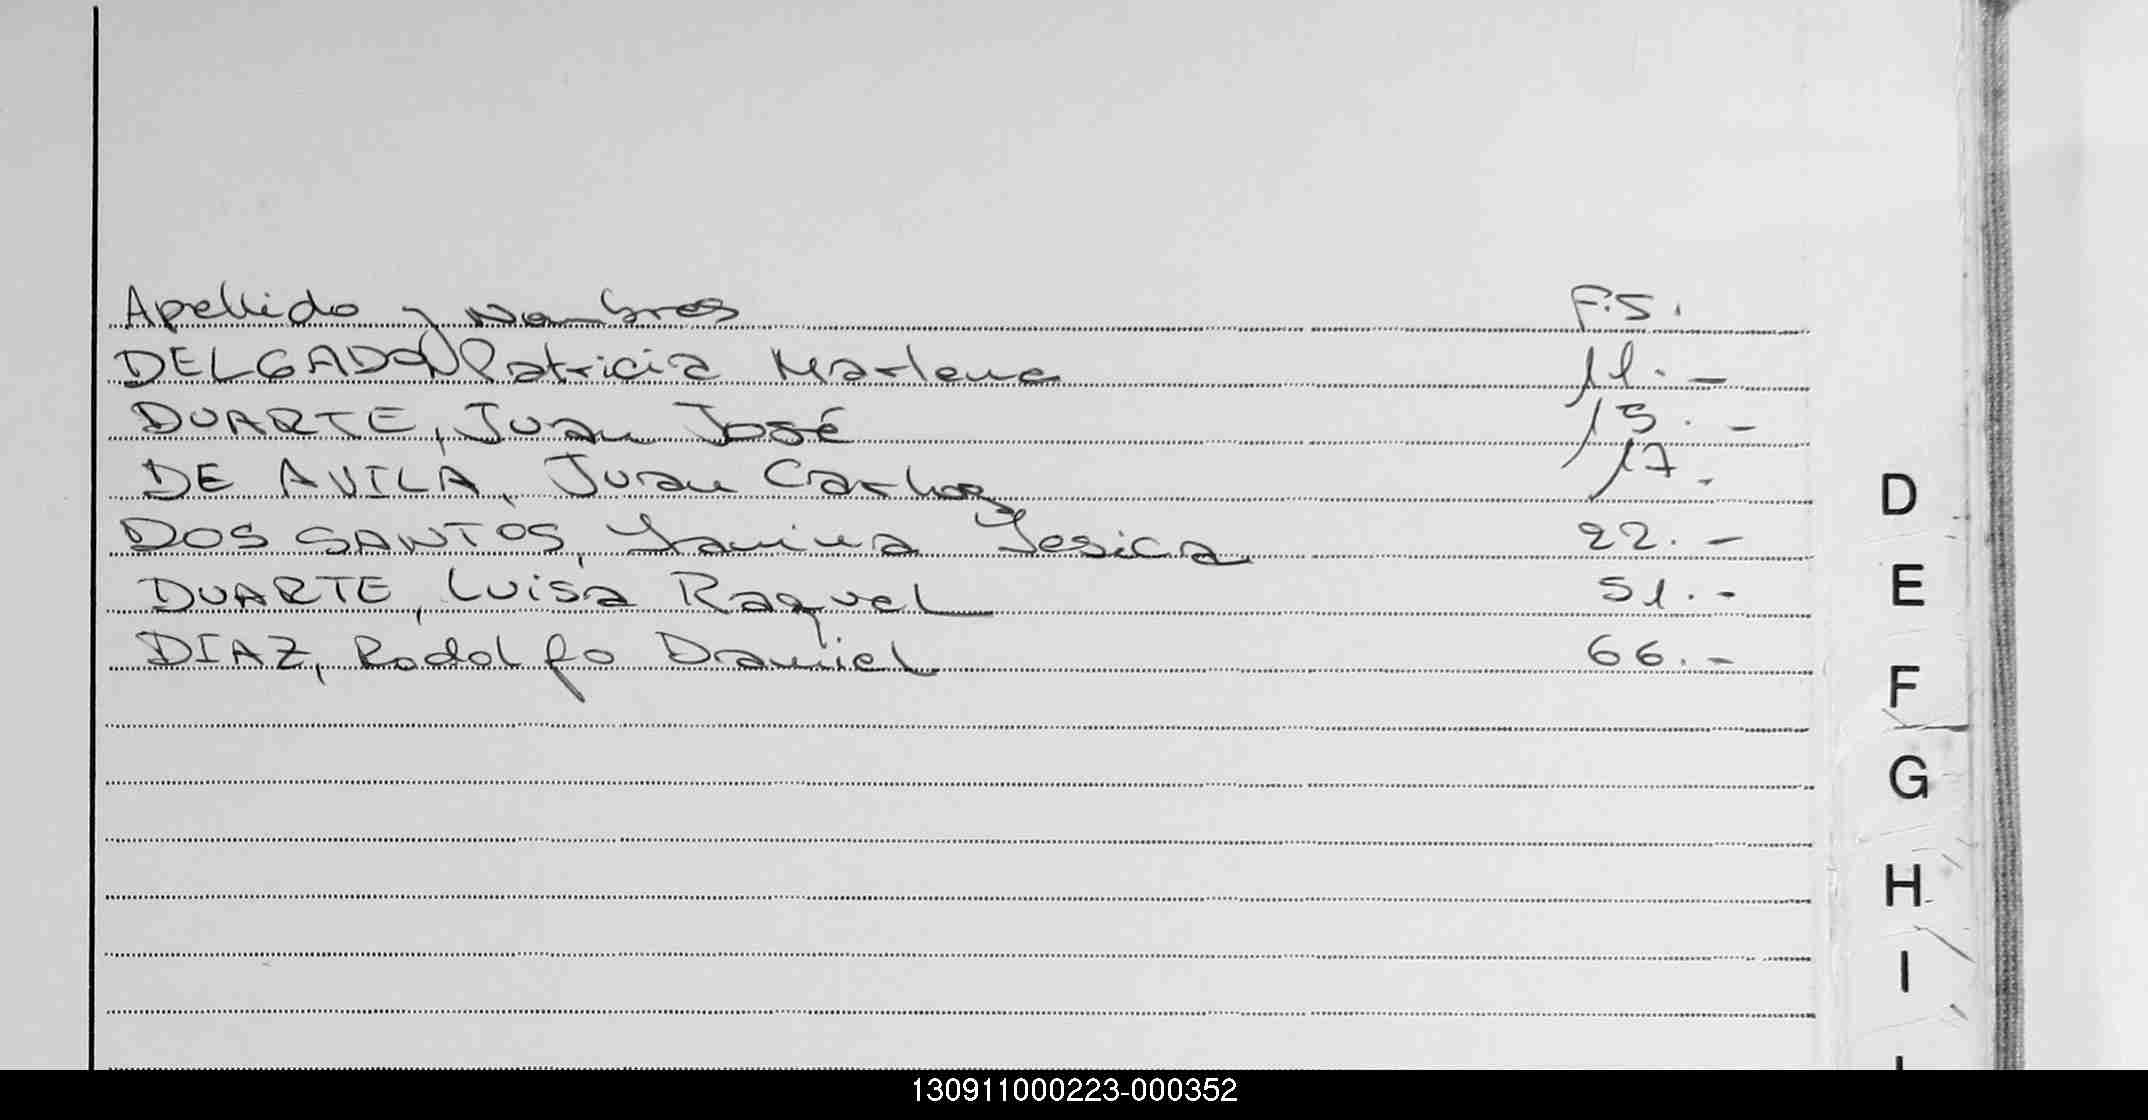 Apellido y Nombres F.S.
DELGADO, Patricia Marlene 11.-
DUARTE, Juan José 15.-
DE AVILA, Juan Carlos 17.-
DOS SANTOS, Yanina Yesica 22.-
DUARTE, Luisa Raquel 51.-
DIAZ, Rodolfo Daniel 66.-
D
E
F
G
H
I
130911000223-000352